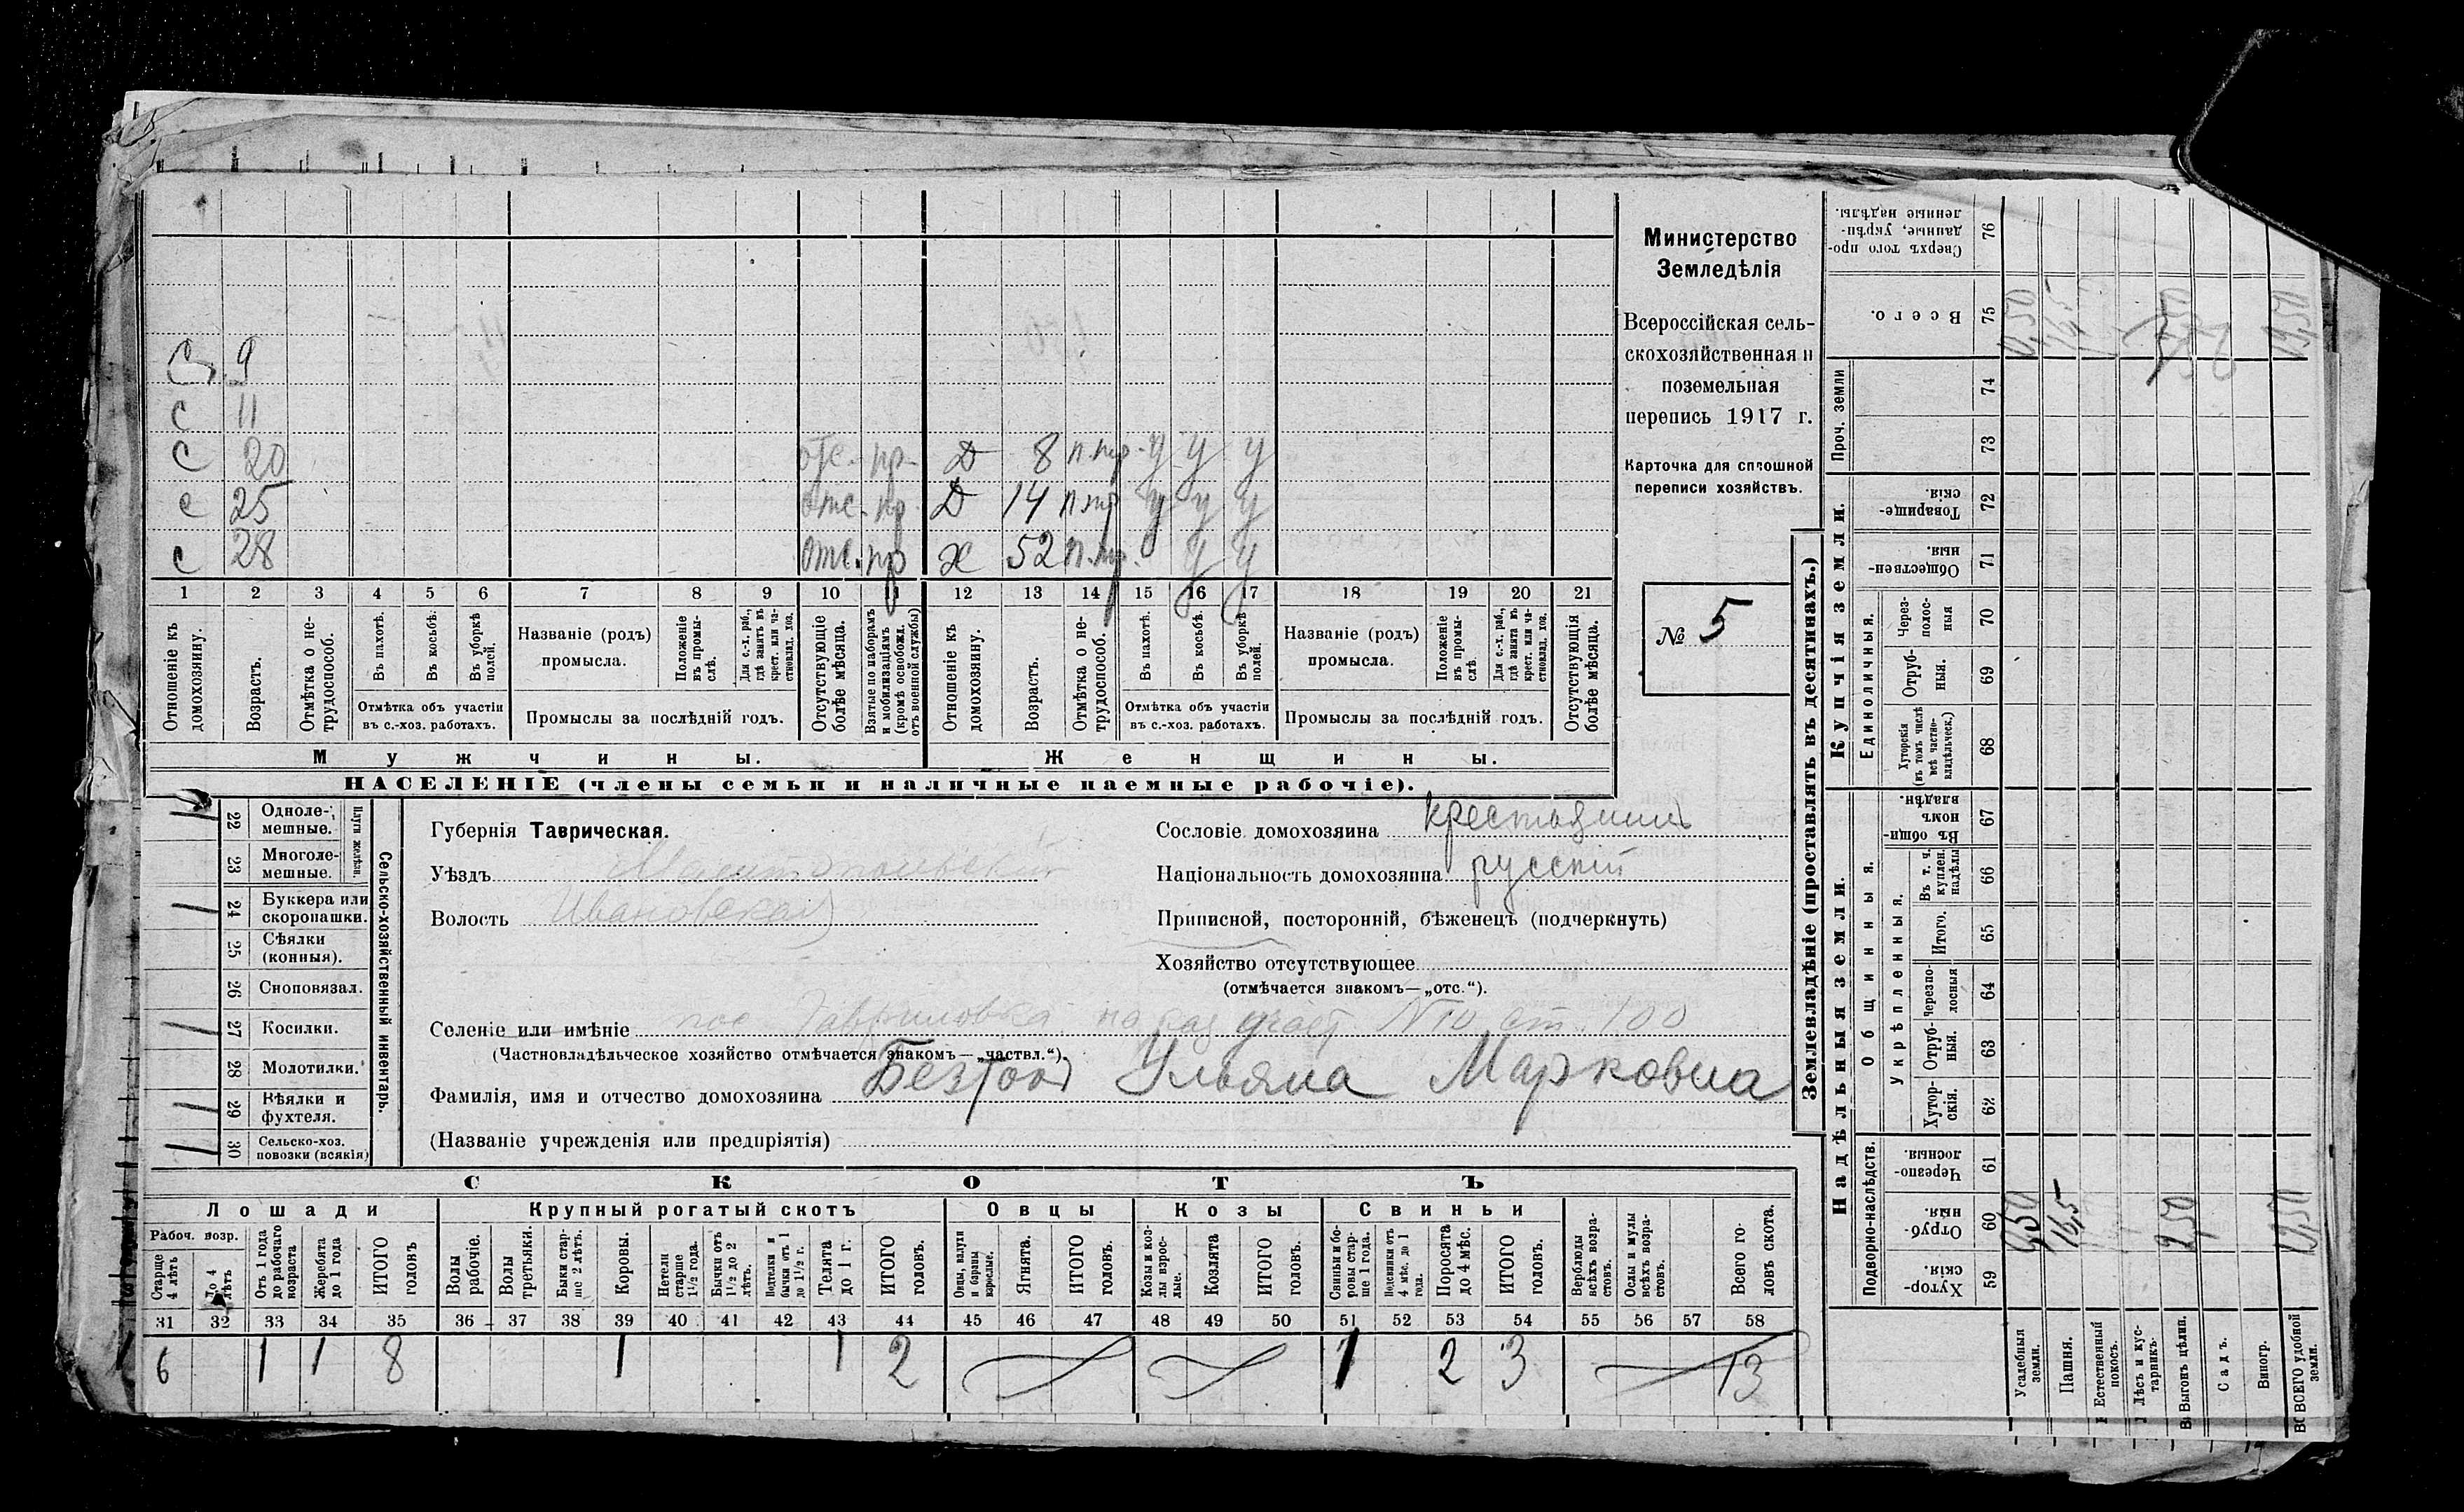 С. 9
С 11
С 20 отс. пр. Д 8 п.пр. у у у
С 25 отс. пр. Д 14 п.пр. у у у
С 28 отс. пр. х 52 п.пр. у у
1 2 3 4 5 6 7 8 9 10 11 12 13 14 15 16 17 18 19 20 21
Отношеніе къ домохозяину.
Возрастъ.
Отмѣтка о не-трудоспособ.
Въ пахотѣ.
Въ косьбѣ.
Въ уборкѣ полей.
Отмѣтка объ участіи
въ с.-хоз. работахъ.
Названіе (родъ)
промысла.
Положеніе въ промы-слѣ.
Для с.-х. раб., гдѣ занятъ въ крест. или ча-стновлад. хоз.
Промыслы за послѣдній годъ.
Отсутствующіе болѣе мѣсяца.
Взятые по наборамъ и мобилизаціямъ (кромѣ освобожд. отъ военной службы)
Отношеніе къ домохозяину.
Возрастъ.
Отмѣтка о не-трудоспособ.
Въ пахотѣ.
Въ косьбѣ.
Въ уборкѣ полей.
Отмѣтка объ участіи
въ с.-хоз. работахъ.
Названіе (родъ)
промысла.
Положеніе въ промы-слѣ.
Для с.-х. раб., гдѣ занята въ крест. или ча-стновлад. хоз.
Промыслы за послѣдній годъ.
Отсутствующія болѣе мѣсяца.
Мужчины.
Женщины.
НАСЕЛЕНІЕ (члены семьи и наличные наемные рабочіе).
Министерство
Земледѣлія
Всероссійская сель-
скохозяйственная и
поземельная
перепись 1917 г.
Карточка для сплошной
переписи хозяйствъ.
№ 5
1 22 Одноле-мешные.
23 Многоле-мешные.
Плуги желѣзн.
1 24 Буккера или скоропашки.
25 Сѣялки (конныя).
26 Сноповязал.
1 27 Косилки.
28 Молотилки.
1 29 Вѣялки и фухтеля.
1 30 Сельско-хоз. повозки (всякія)
Сельско-хозяйственный инвентарь.
Губернія Таврическая.
Уѣздъ Мелитопольскій
Волость Ивановская
Селеніе или имѣніе пос. Гавриловка на каз участ. №10 ст. 100
(Частновладѣльческое хозяйство отмѣчается знакомъ—„частвл.“)
Фамилія, имя и отчество домохозяина Ульяна Марковна
(Названіе учрежденія или предпріятія)
Сословіе домохозяина крестьянин
Національность домохозяина русскій
Приписной, посторонній, бѣженецъ (подчеркнуть)
Хозяйство отсутствующее
(отмѣчается знакомъ—„отс.“).
СКОТЪ
Лошади
Крупный рогатый скотъ
Овцы
Козы
Свиньи
Рабоч. возр.
Старше 4 лѣтъ
До 4 лѣтъ
Отъ 1 года до рабочаго возраста
Жеребята до 1 года
ИТОГО головъ
Волы рабочіе.
Волы третьяки.
Быки стар-ше 2 лѣтъ.
Коровы.
Нетели старше 1½ года.
Бычки отъ 1½ до 2 лѣтъ.
Подтелки и бычки отъ 1 до 1½ г.
Телята до 1 г.
ИТОГО головъ.
Овцы, валухи и бараны взрослые.
Ягнята.
ИТОГО головъ.
Козы и коз-лы взрос-лые.
Козлята
ИТОГО головъ.
Свиньи и бо-ровы стар-ше 1 года.
Подсвинки отъ 4 мѣс. до 1 года.
Поросята до 4 мѣс.
ИТОГО головъ.
Верблюды всѣхъ возра-стовъ.
Ослы и мулы всѣхъ возра-стовъ.
Всего го-ловъ скота.
31 32 33 34 35 36 37 38 39 40 41 42 43 44 45 46 47 48 49 50 51 52 53 54 55 56 57 58
6 1 1 8 1 1 2 1 2 3 13
Землевладѣніе (проставлять въ десятинахъ.)
Купчія земли.
Надѣльныя земли.
Сверхъ того про-данные, укрѣп-ленные надѣлы. 76
Всего. 75 0,50 16,5 2,50 19,50
Проч. земли
74
73
Товарище-скія. 72
Обществен-ныя. 71
Единоличныя.
Через-полос-ныя 70
Отруб-ныя. 69
Хуторскія (въ томъ числѣ всѣ частно-владѣльческ.) 68
Общинныя.
Въ общи-номъ владѣн. 67
Укрѣпленныя.
Въ т. ч. куплен. надѣлы 66
Итого. 65
Черезпо-лосныя 64
Отруб-ныя. 63
Хутор-скія. 62
Подворно-наслѣдств.
Черезпо-лосныя 61
Отруб-ныя. 60 0,50 16,5 2,50 19,50
Хутор-скія. 59
Усадебныя земли.
Пашня.
Естественный покосъ.
Лѣсъ и кус-тарникъ.
Выгонъ цѣлин.
Садъ.
Виногр.
ВСЕГО удобной земли.